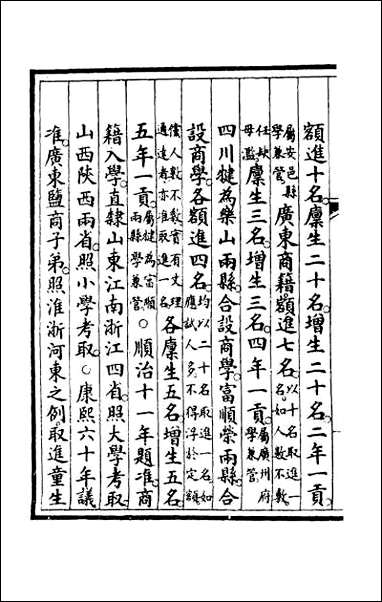 額進十名。廩生二十名。增生二十名。二年一貢。
屬安邑縣學兼管。廣東商籍。額進七名。以十名取進一名。如人數不敷
任缺毋濫。廩生三名。增生三名。四年一貢。屬廣州府學兼管。
四川犍為樂山兩縣。合設商學。富順榮兩縣。合
設商學。各額進四名。均以二十名取進一名。如應試人多。不得浮於定額
儻人數不敷。實有文理通達者。亦准取進一名。各廩生五名。增生五名。
五年一貢。屬犍為富順兩縣學兼管。○順治十一年題准。商
籍入學。直隸山東江南浙江四省。照大學考取。
山西陝西兩省。照小學考取。○康熙六十年議
准。廣東鹽商子弟。照淮浙河東之例。取進童生